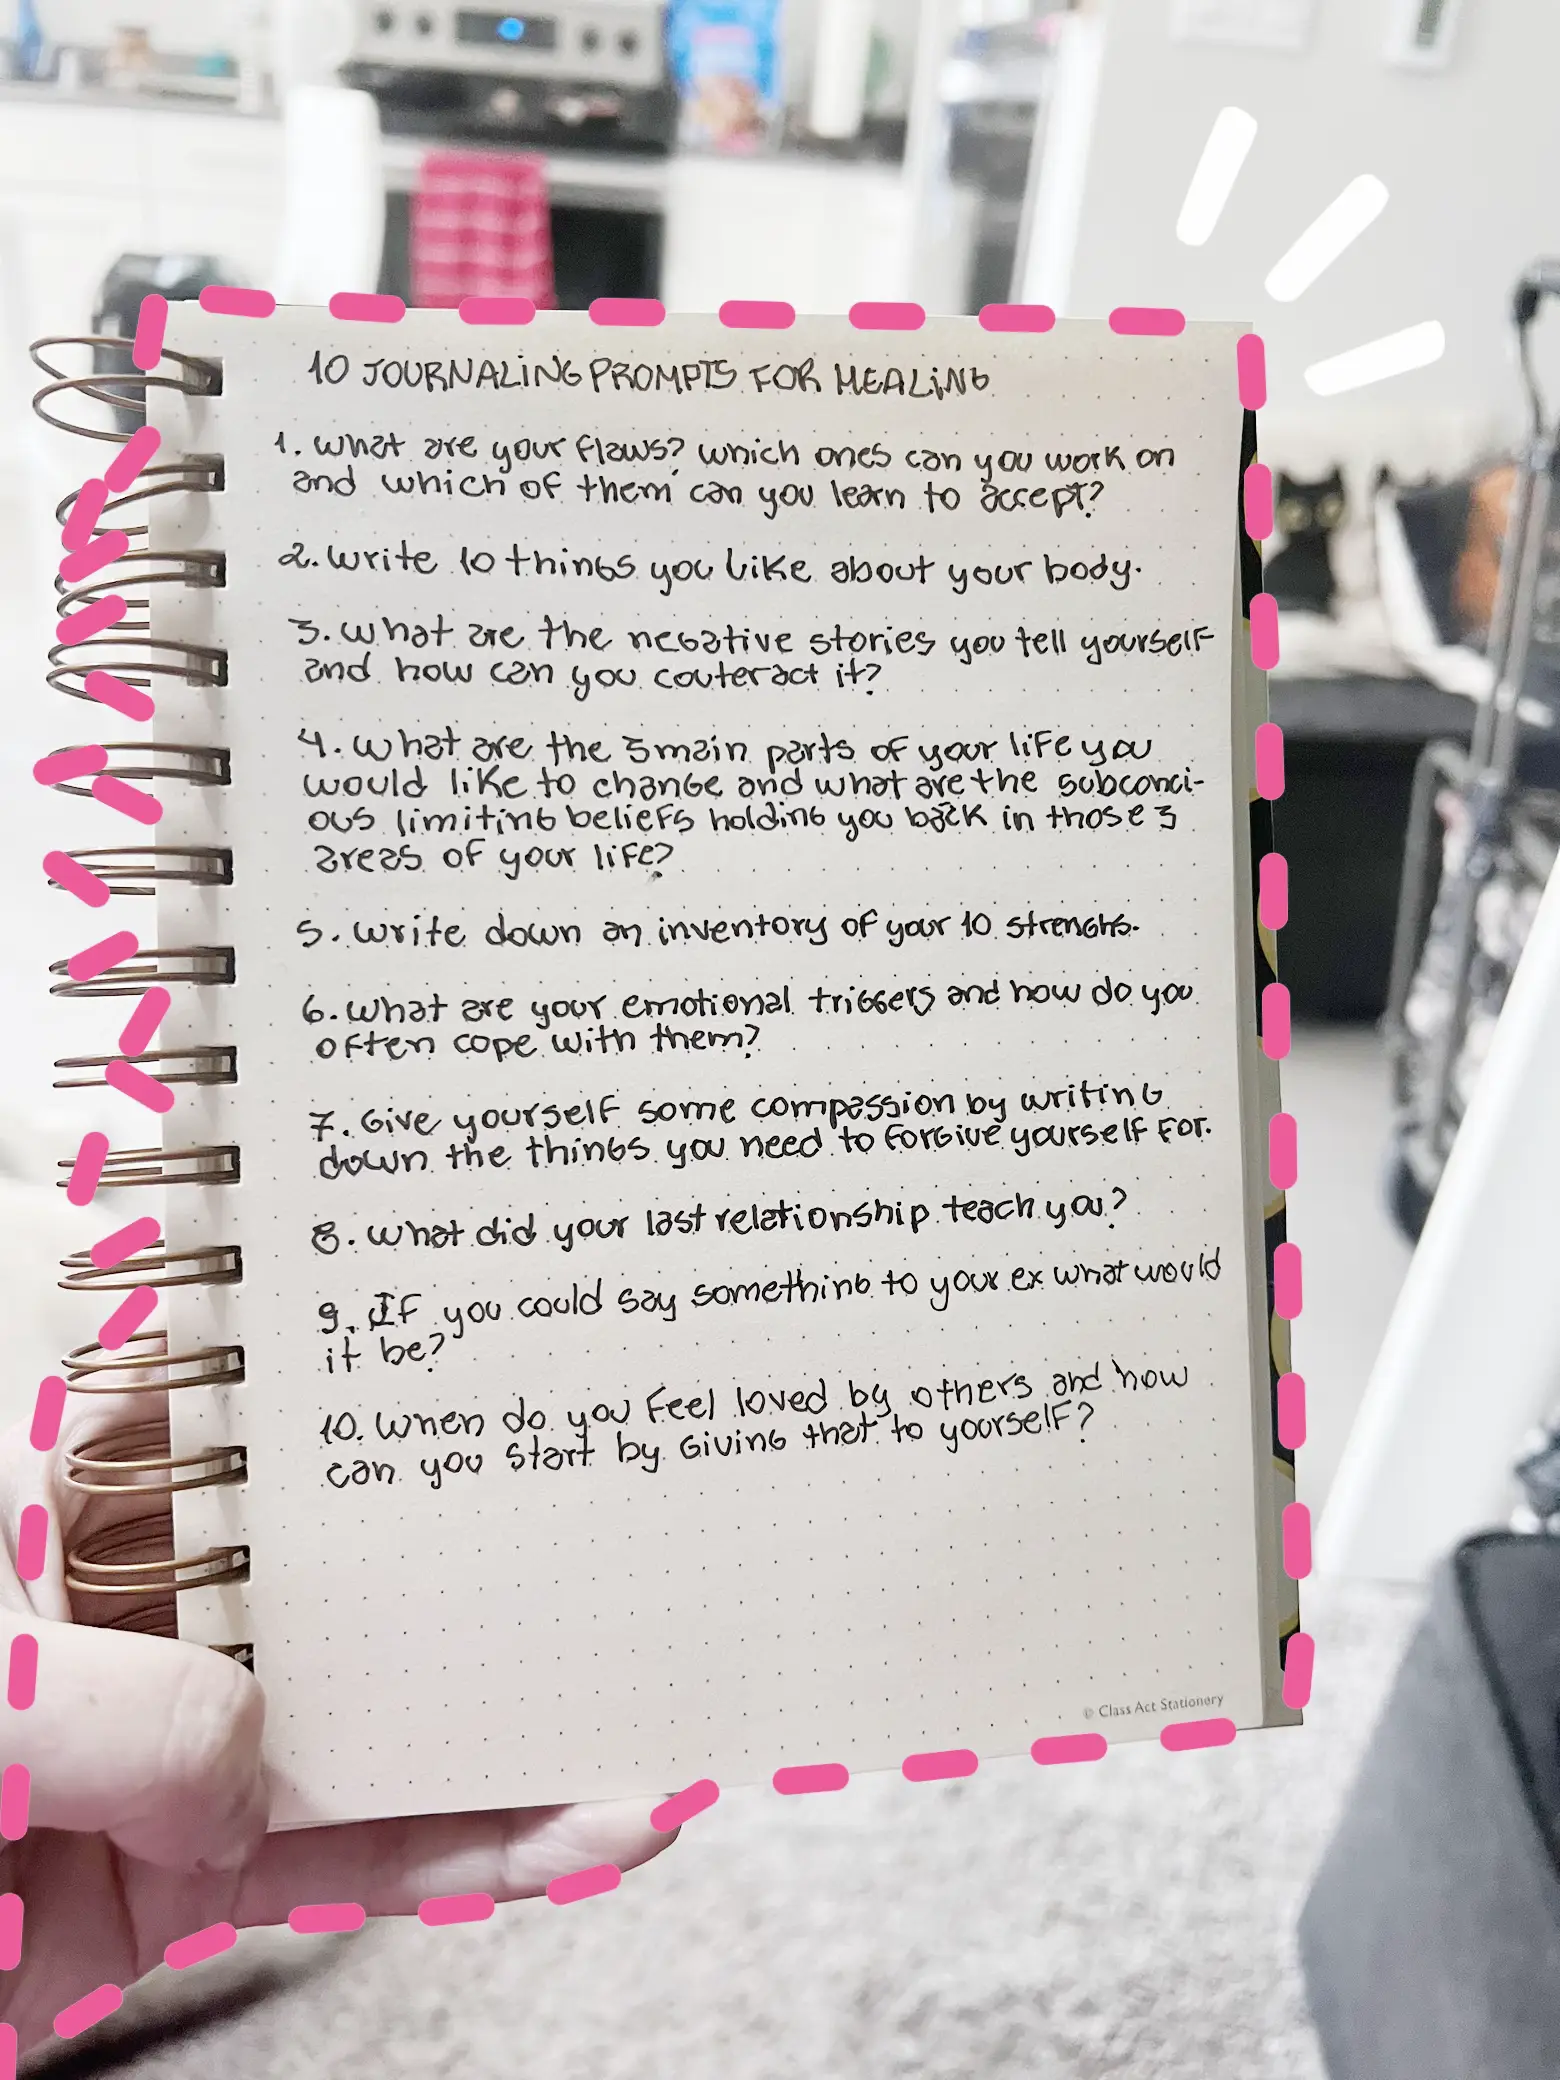 10 JOURNALING PROMPTS FOR HEALING
1. What are your flaws? which ones can you work on
and which of them can you learn to accept?
2. Write 10 things you like about your body.
3. What are the negative stories you tell yourself
and how can you couteract it?
4. What are the 3 main parts of your life you
would like to change and what are the subconci-
ous limiting beliefs holding you back in those 3
areas of your life?
5. Write down an inventory of your 10 strenghs.
6. What are your emotional triggers and how do you
often cope with them?
7. Give yourself some compassion by writing
down the things you need to forgive yourself for.
8. What did your last relationship teach you?
9. If you could say something to your ex what would
it be?
10. When do you feel loved by others and how
can you start by giving that to yourself?
© Class Act Stationery